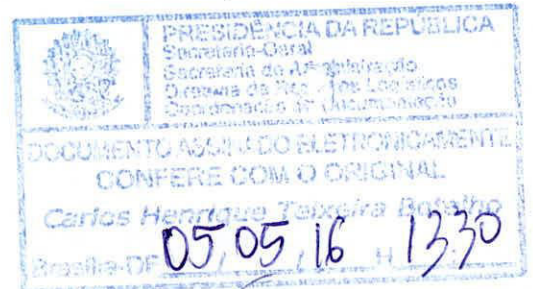 PRESIDÊNCIA DA REPÚBLICA
Secretaria-Geral
Secretaria de Administração
Diretoria de Recursos Logísticos
Coordenação de Documentação
DOCUMENTO ASSINADO ELETRONICAMENTE
CONFERE COM O ORIGINAL
Carlos Henrique Teixeira Botelho
Brasília-DF 05, 05, 16 H 1330